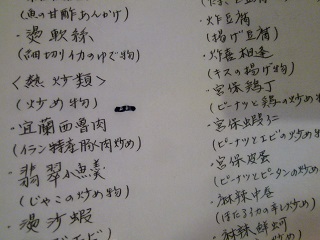 (魚の甘酢あんかけ)
・燙軟絲
(細切りイカのゆで物)
<熱炒類>
(炒め物)
・宜蘭西魯肉
(イラン特産豚肉炒め)
・翡翠小魚羹
(じゃこの炒め物)
・燙沙蝦
・炸豆腐
(揚げ豆腐)
(キスの揚げ物)
・宮保鶏丁
(ピーナツと鶏の炒め物
・宮保蝦仁
(ピーナツとエビの炒め
・宮保皮蛋
(ピーナツとピータンの炒め
・麻辣中卷
(ほたるイカの辛し炒め)
・麻辣鮮蚵